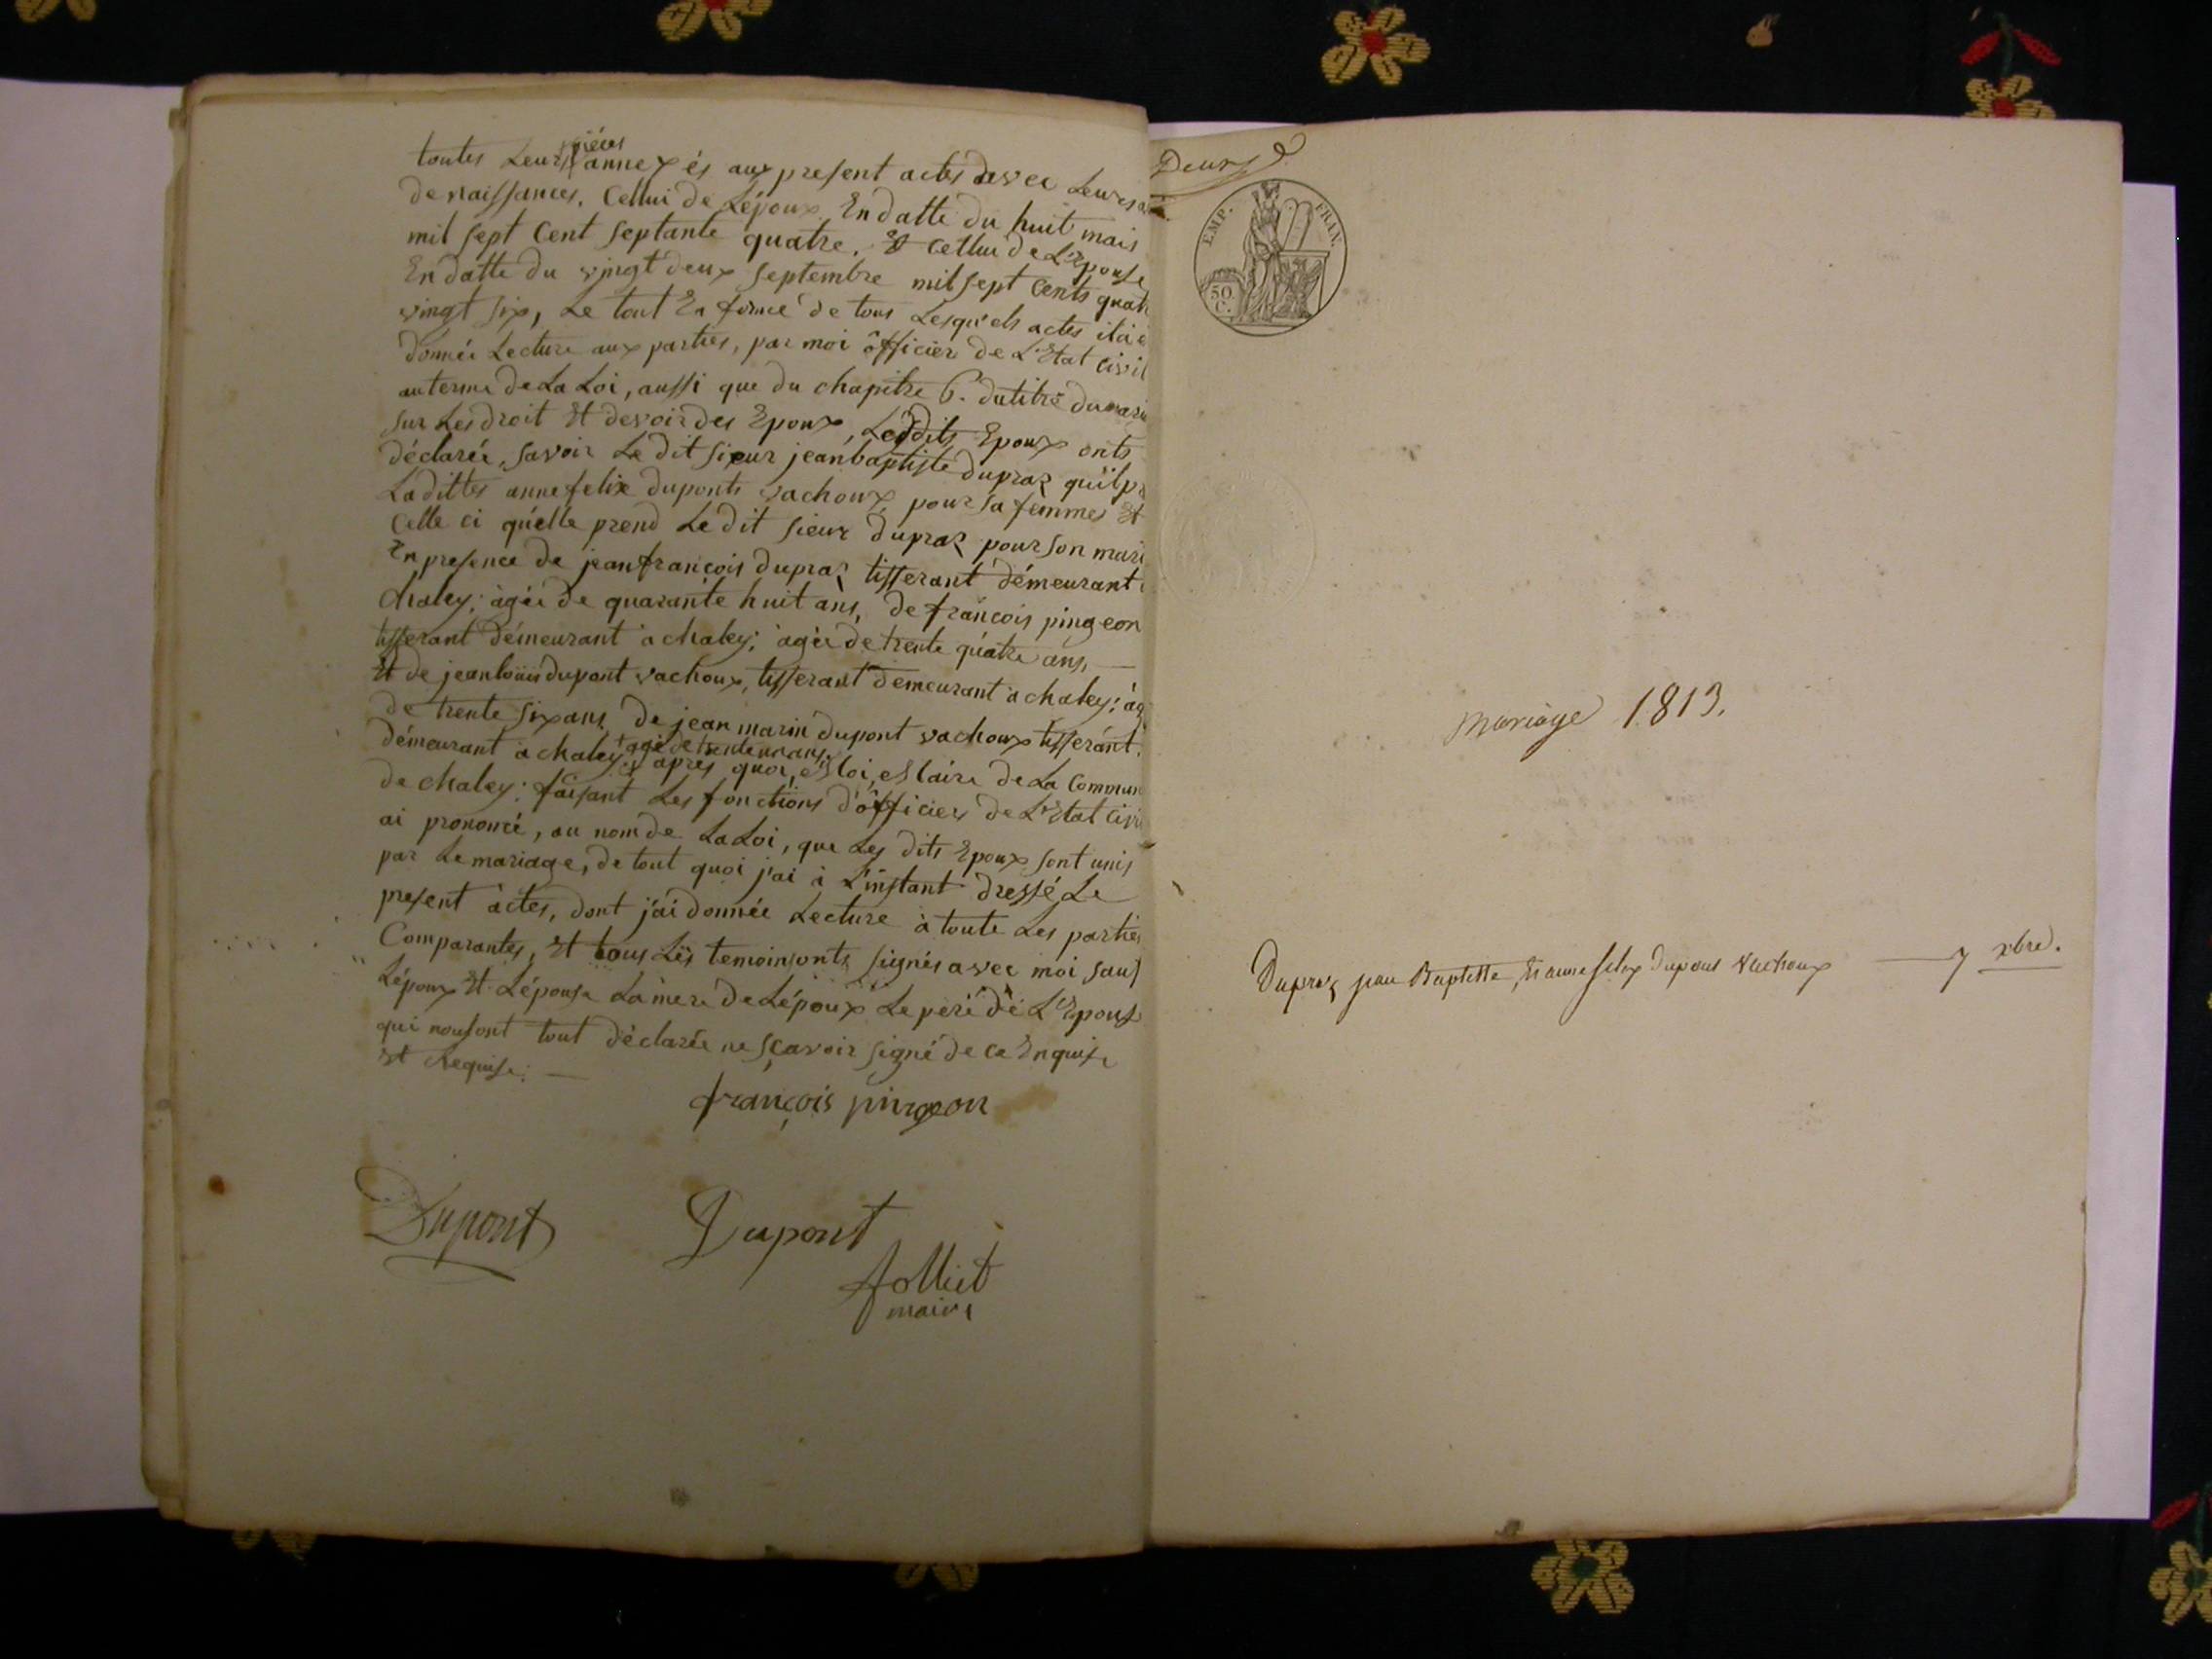 toutes Leurs pièces annexés aux present actes avec Leurs
de naissances. Cellui de Lépoux En datte du huit mais
mil sept Cent septante quatre. Et cellui de L'Epouse
En datte du vingt deux septembre mil sept Cents quat
vingt six, Le tout En forme de tous Lesquels actes
donnée Lecture aux parties, par moi officier de L'Etat Civil
au terme de La Loi, aussi que du chapitre 6. du titre du mari
sur Les droit Et devoir des Epoux, Lesdits Epoux onts
déclarée, savoir Le dit sieur jean baptiste dupraz qu'il p
Ladittes anne felix duponts vachoux pour sa femmes Et
Celle ci qu'elle prend Le dit sieur dupraz pour son mari
En presence de jean françois dupraz tisserant démeurant
chaley; agée de quarante huit ans, de françois pingeon
tisserant démeurant a chaley; agée de trente quatre ans,
Et de jean louis dupont vachoux, tisserant demeurant a chaley; ag
de trente six ans, de jean marin dupont vachoux tisserant
démeurant a chaley; agé de trente un ans, après quoi, Moi, Maire de La Commun
de chaley; faisant Les fonctions d'officier de L'Etat Civi
ai prononcé, au nom de La Loi, que Les dits Epoux sont unis
par Le mariage, de tout quoi j'ai à L'instant dressé Le
present actes, dont j'ai donnée Lecture à toute Les parties
Comparantes, Et tous Les temoins onts signés avec moi sauf
Lépoux Et Lépouse La mere de Lépoux Le pere de L'Epouse
qui nous ont tout déclarée ne sçavoir signé de ce Enquise
Et Requise.
françois pingeon
Dupont Dupont
Jolliet
maire
Deux
EMP. FRAN.
50
C.
Mariage 1813.
Dupraz jean Baptiste, Et anne felix dupont Vachoux 7 xbre.